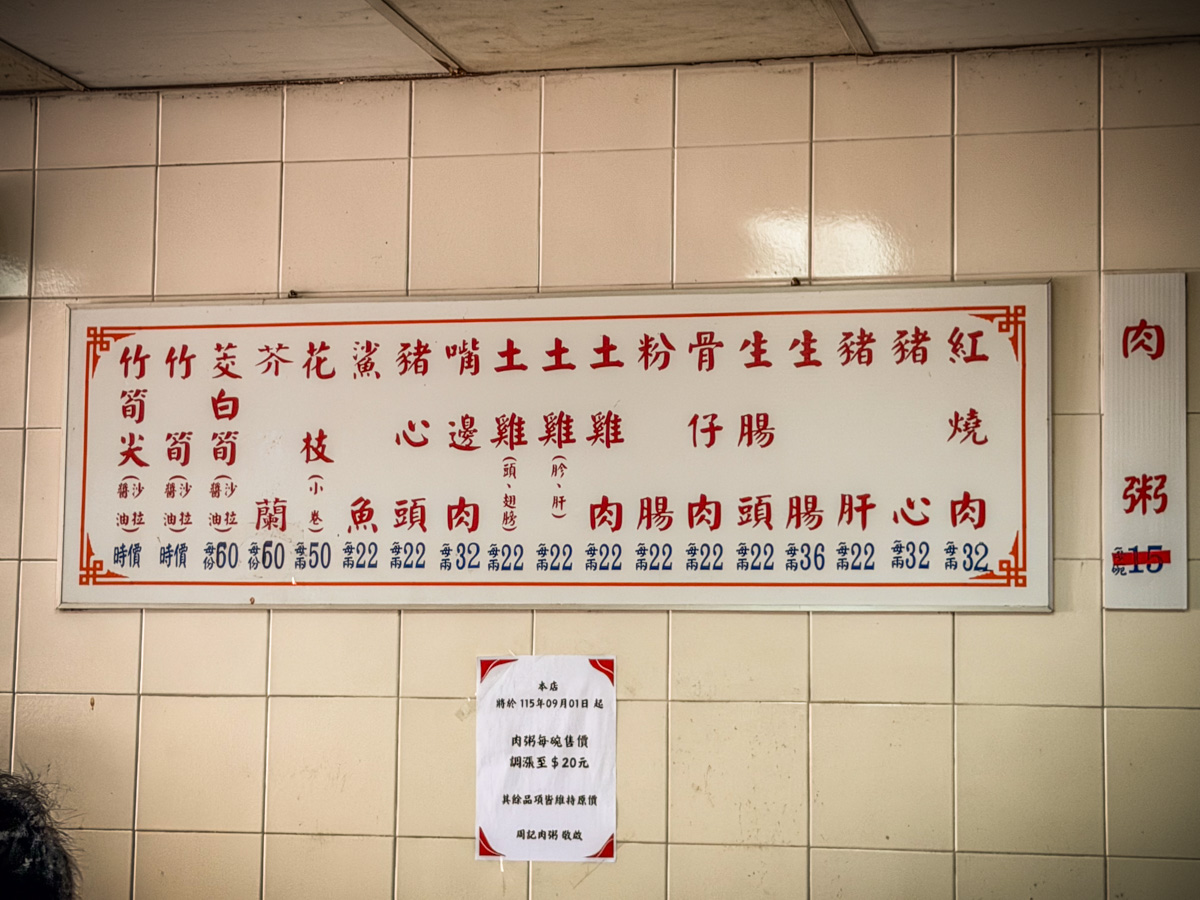 紅燒肉 每兩32
豬心 每兩32
豬肝 每兩22
生腸 每兩36
生腸頭 每兩22
骨仔肉 每兩22
粉腸 每兩22
土雞肉 每兩22
土雞(胗、肝) 每兩22
土雞(頭、翅膀) 每兩22
嘴邊肉 每兩32
豬心頭 每兩22
鯊魚 每兩22
花枝(小卷) 每兩50
芥蘭 每份60
茭白筍(沙拉)(醬油) 每份60
竹筍(沙拉)(醬油) 時價
竹筍尖(沙拉)(醬油) 時價
肉粥 每碗15
本店
將於 115年09月01日 起
肉粥每碗售價
調漲至$20元
其餘品項皆維持原價
周記肉粥 敬啟